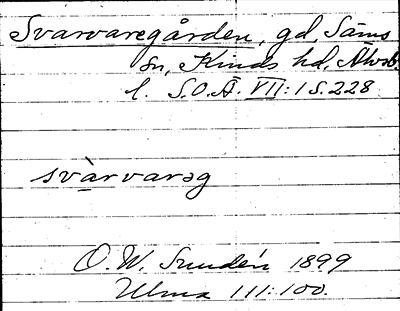 Svarvaregården, gd, Säms
sn, Kinds hd, Älvsb.
l. S.O.Ä. VII:1 S.228
svàrvarəg
O. W. Sundén 1899
Ulma 111:100.